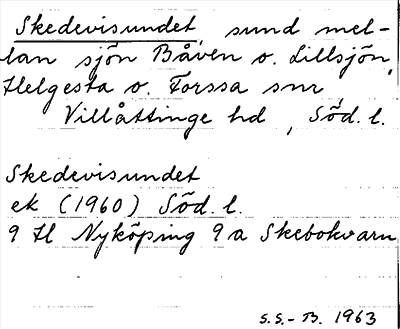 Skedevisundet, sund mel-
lan sjön Båven o. Lillsjön,
Helgesta o. Forssa snr
Villåttinge hd, Söd. l.
Skedevisundet
ek (1960) Söd. l.
9 H Nyköping 9 a Skebokvarn
S.S.-B. 1963